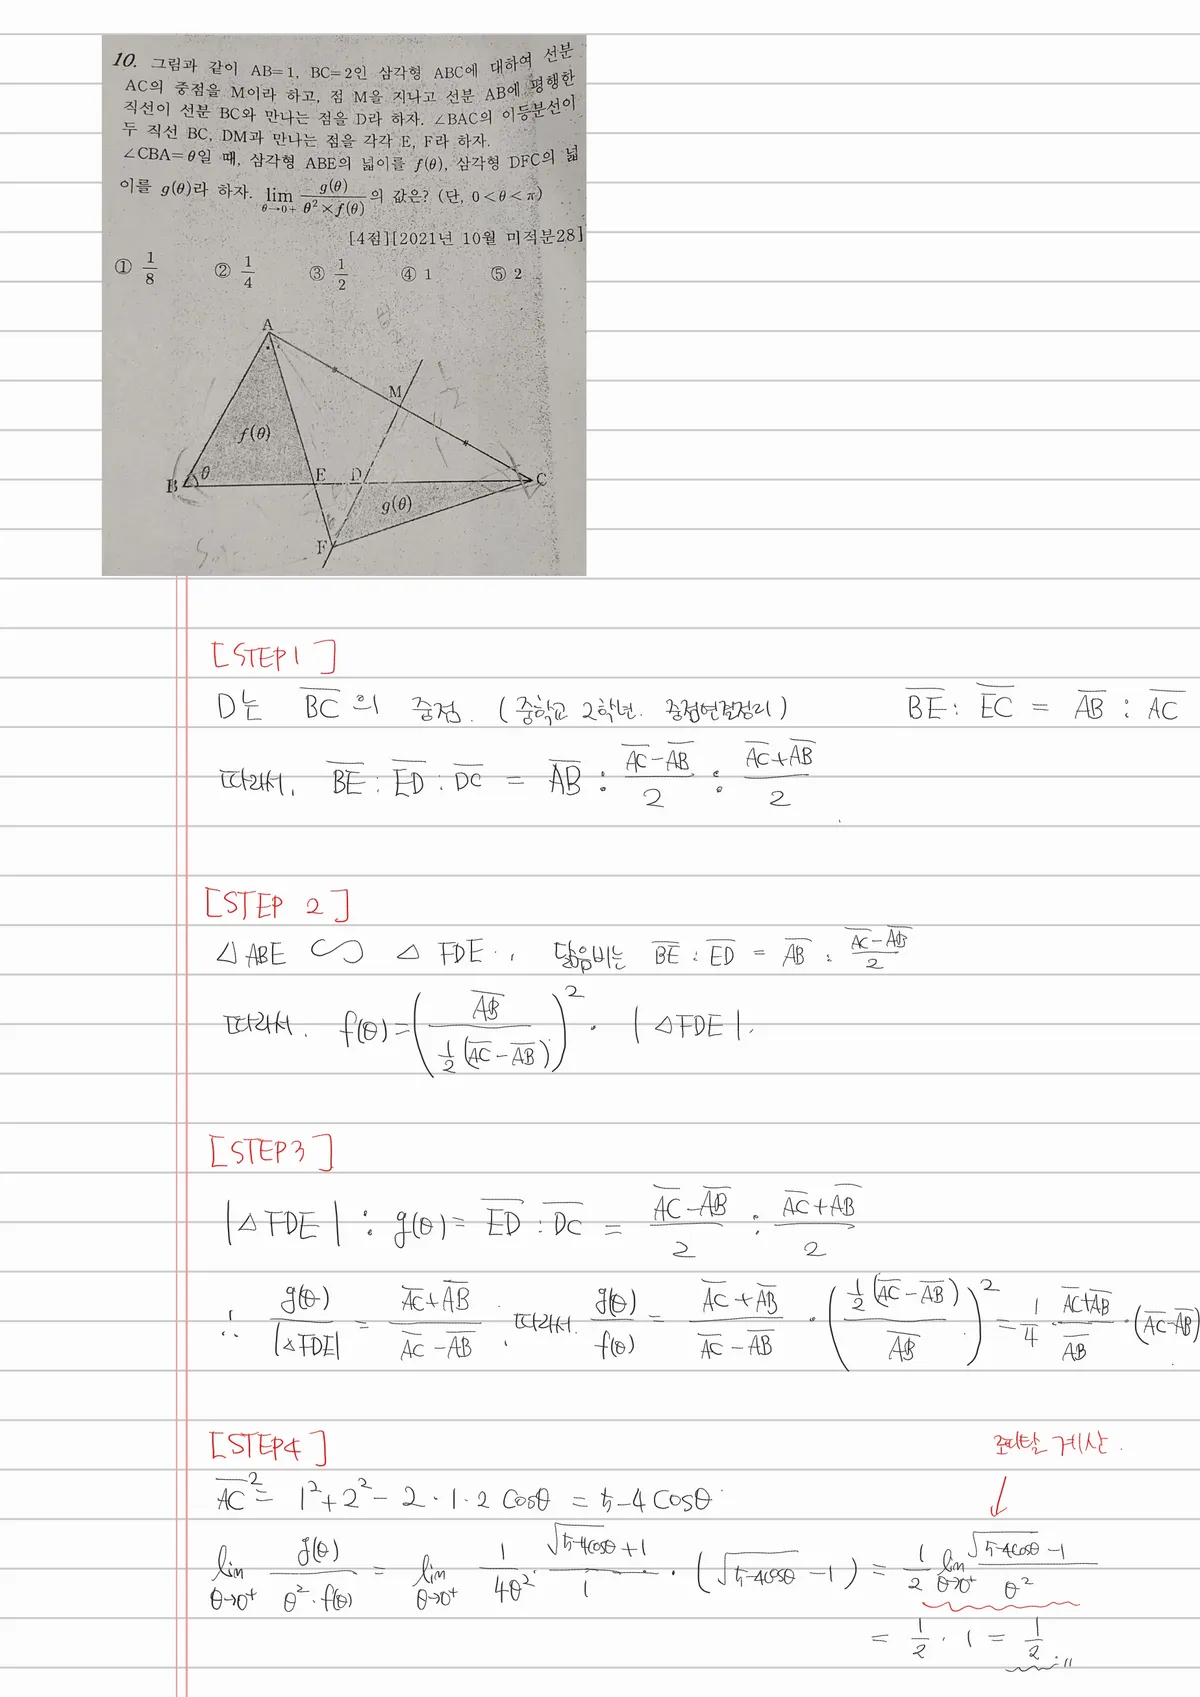 10. 그림과 같이 AB=1, BC=2인 삼각형 ABC에 대하여 선분
AC의 중점을 M이라 하고, 점 M을 지나고 선분 AB에 평행한
직선이 선분 BC와 만나는 점을 D라 하자. ∠BAC의 이등분선이
두 직선 BC, DM과 만나는 점을 각각 E, F라 하자.
∠CBA=θ일 때, 삼각형 ABE의 넓이를 f(θ), 삼각형 DFC의 넓
이를 g(θ)라 하자. lim θ→0+ g(θ)/(θ²×f(θ)) 의 값은? (단, 0<θ<π)
[4점][2021년 10월 미적분28]
① 1/8 ② 1/4 ③ 1/2 ④ 1 ⑤ 2
A
M
f(θ)
B θ E D C
g(θ)
F
[STEP1]
D는 BC의 중점. (중학교 2학년. 중점연결정리) BE : EC = AB : AC
따라서, BE : ED : DC = AB : (AC-AB)/2 : (AC+AB)/2
[STEP 2]
△ABE ∽ △FDE, 닮음비는 BE : ED = AB : (AC-AB)/2
따라서, f(θ) = (AB / ½(AC-AB))² · |△FDE|.
[STEP3]
|△FDE| : g(θ) = ED : DC = (AC-AB)/2 : (AC+AB)/2
∴ g(θ)/|△FDE| = (AC+AB)/(AC-AB), 따라서. g(θ)/f(θ) = (AC+AB)/(AC-AB) · (½(AC-AB)/AB)² = 1/4 · (AC+AB)/AB · (AC-AB)
[STEP4] 로피탈 계산.
AC² = 1²+2²-2·1·2 cosθ = 5-4cosθ
lim θ→0+ g(θ)/(θ²·f(θ)) = lim θ→0+ 1/(4θ²) · (√(5-4cosθ)+1)/1 · (√(5-4cosθ)-1) = 1/2 lim θ→0+ (√(5-4cosθ)-1)/θ²
= 1/2 · 1 = 1/2